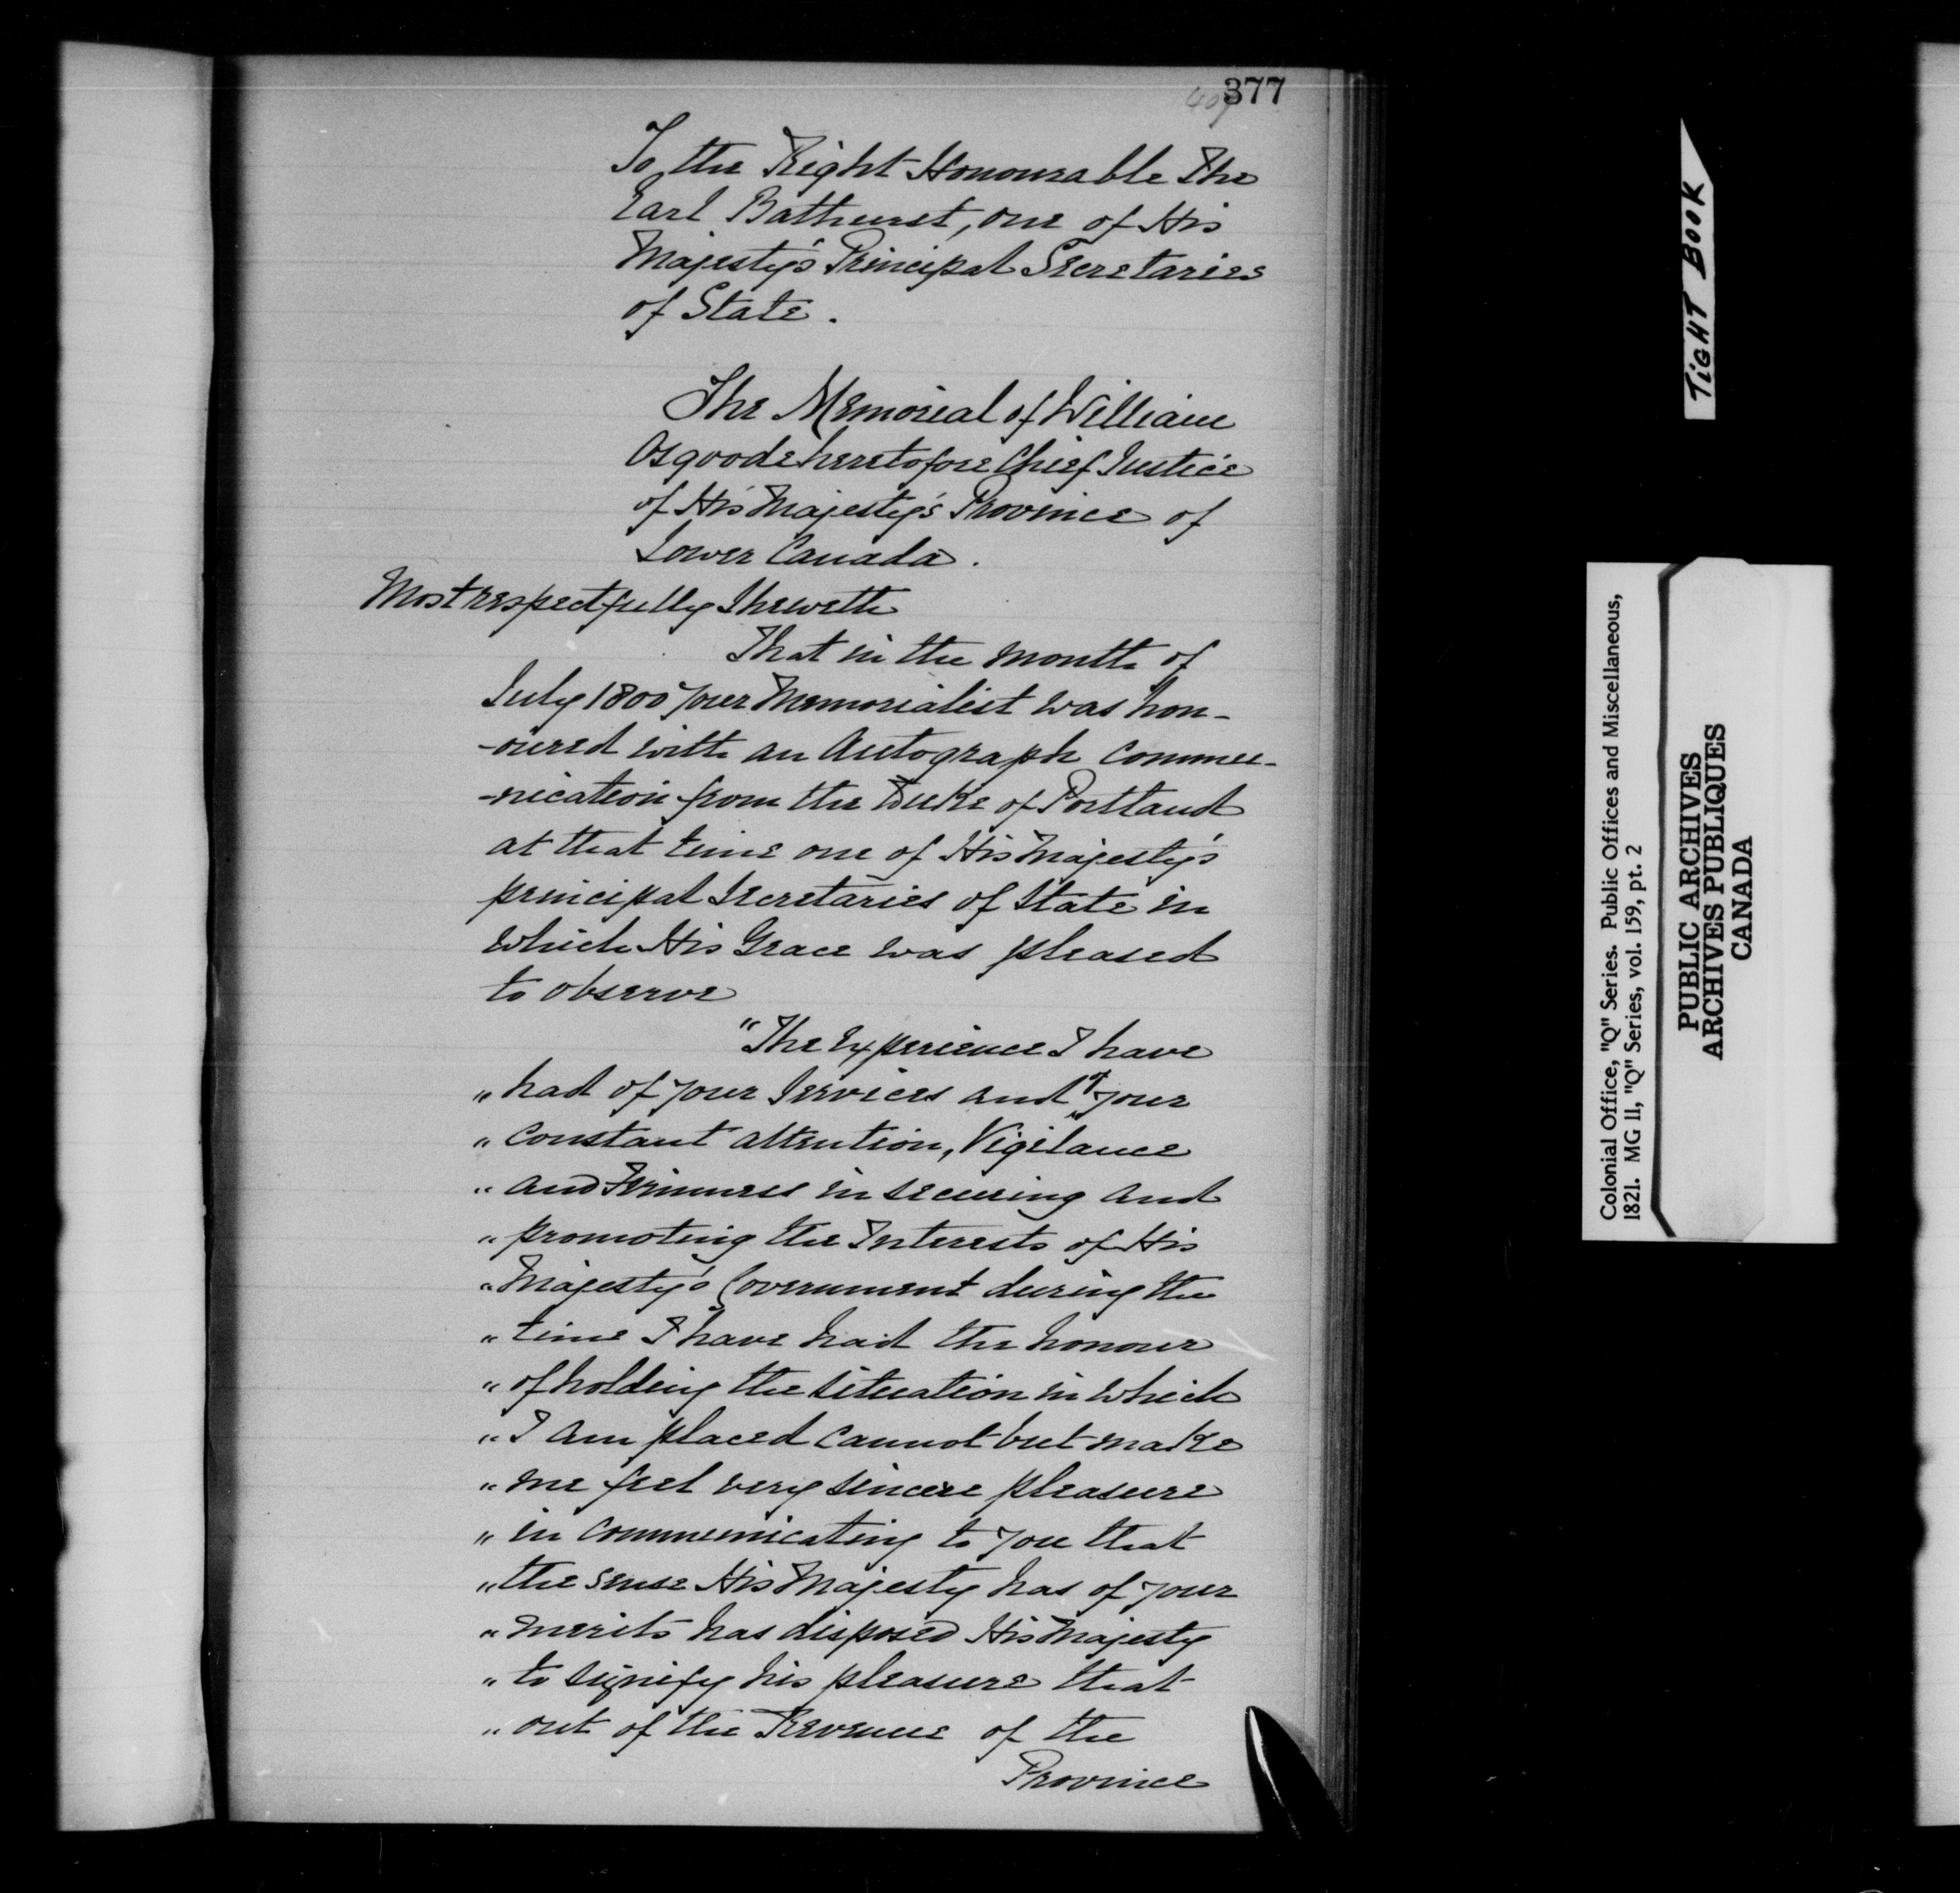 377
To the Right Honourable The
Earl Bathurst, one of His
Majesty's Principal Secretaries
of State.
The Memorial of William
Osgoode heretofore Chief Justice
of His Majesty's Province of
Lower Canada.
Most respectfully Sheweth
That in the month of
July 1800 your Memorialist was hon-
-oured with an Autograph commu-
-nication from the Duke of Portland
at that time one of His Majesty's
principal Secretaries of State in
which His Grace was pleased
to observe
"The Experience I have
" had of your Services and of your
" constant attention, Vigilance
" and Firmness in securing and
" promoting the Interests of His
" Majesty's Government during the
" time I have had the honour
" of holding the situation in which
" I am placed cannot but make
" me feel very sincere pleasure
" in communicating to you that
" the sense His Majesty has of your
" merits has disposed His Majesty
" to signify his pleasure that
" out of the Revenue of the
Province
TIGHT BOOK
Colonial Office, "Q" Series. Public Offices and Miscellaneous,
1821. MG 11, "Q" Series, vol. 159, pt. 2
PUBLIC ARCHIVES
ARCHIVES PUBLIQUES
CANADA